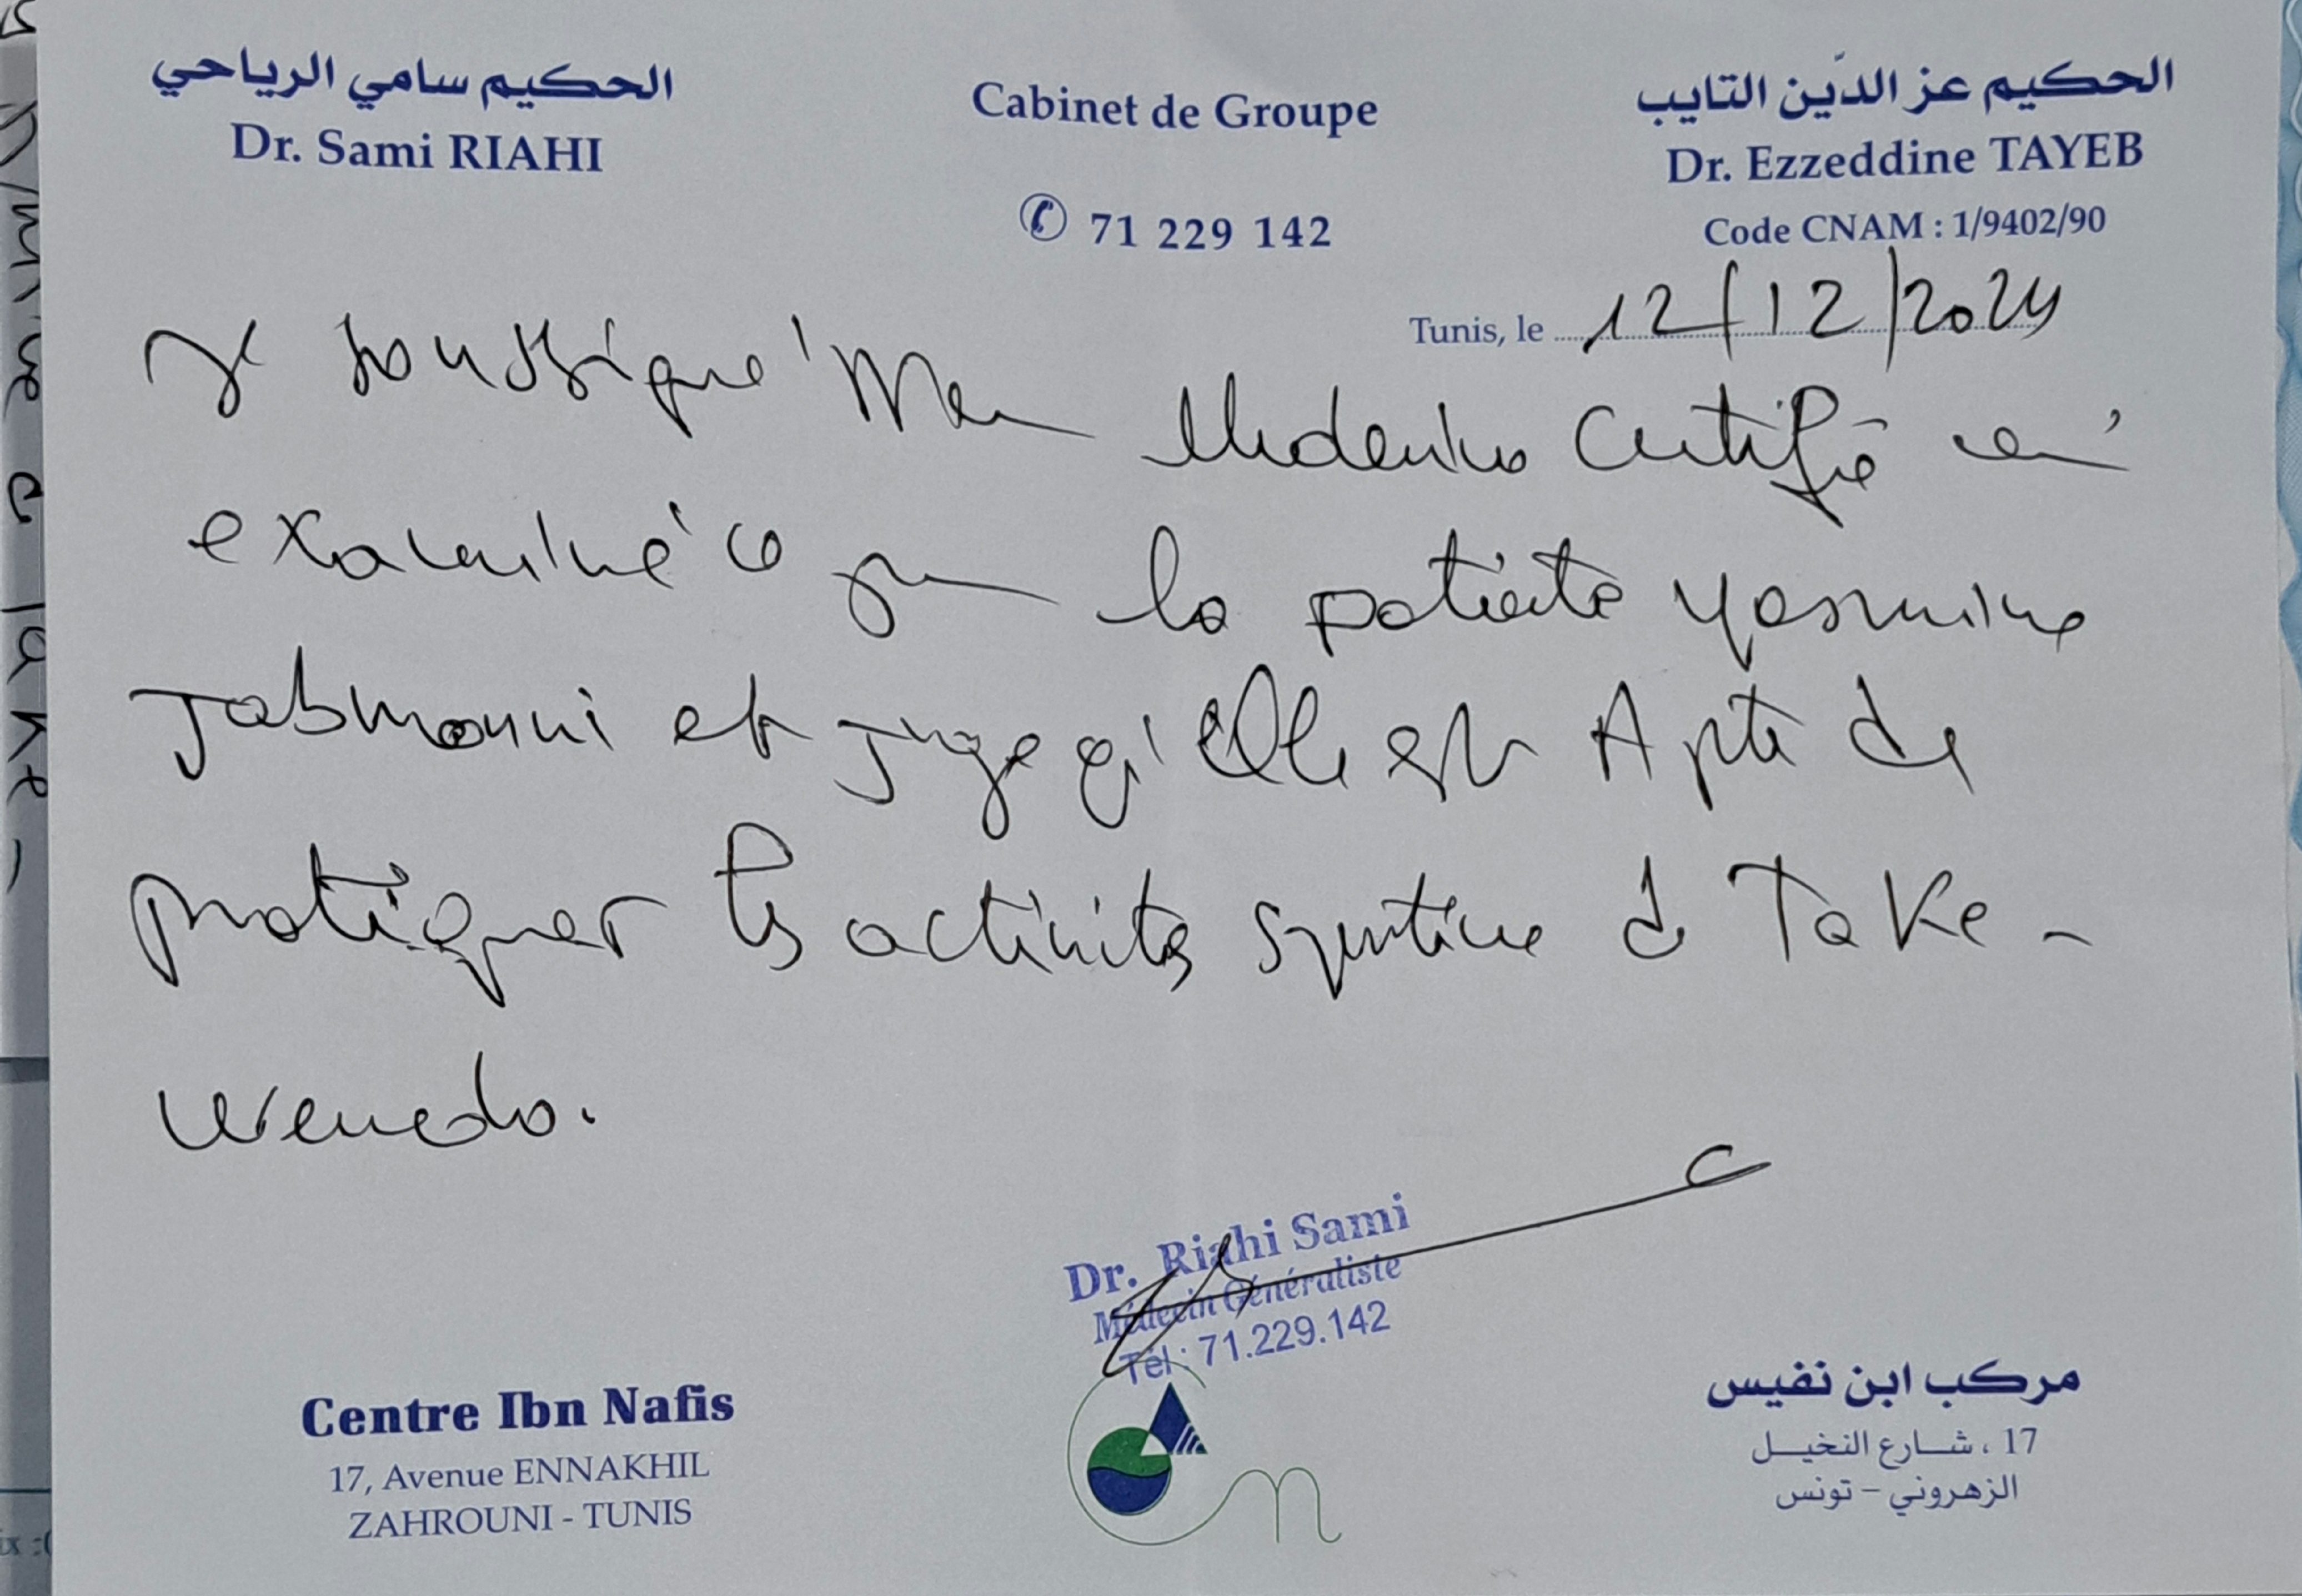 الحكيم سامي الرياحي
Dr. Sami RIAHI
Cabinet de Groupe
71 229 142
الحكيم عز الدّين التايب
Dr. Ezzeddine TAYEB
Code CNAM : 1/9402/90
Tunis, le 12/12/2024
Je soussigné certifie
examiné ce jour la patiente Yasmine
et juge qu'elle est Apte de
pratiquer les activités sportive de Take-
wendo.
Dr. Riahi Sami
Médecin Généraliste
Tél : 71.229.142
Centre Ibn Nafis
17, Avenue ENNAKHIL
ZAHROUNI - TUNIS
مركب ابن نفيس
17 ، شارع النخيل
الزهروني - تونس